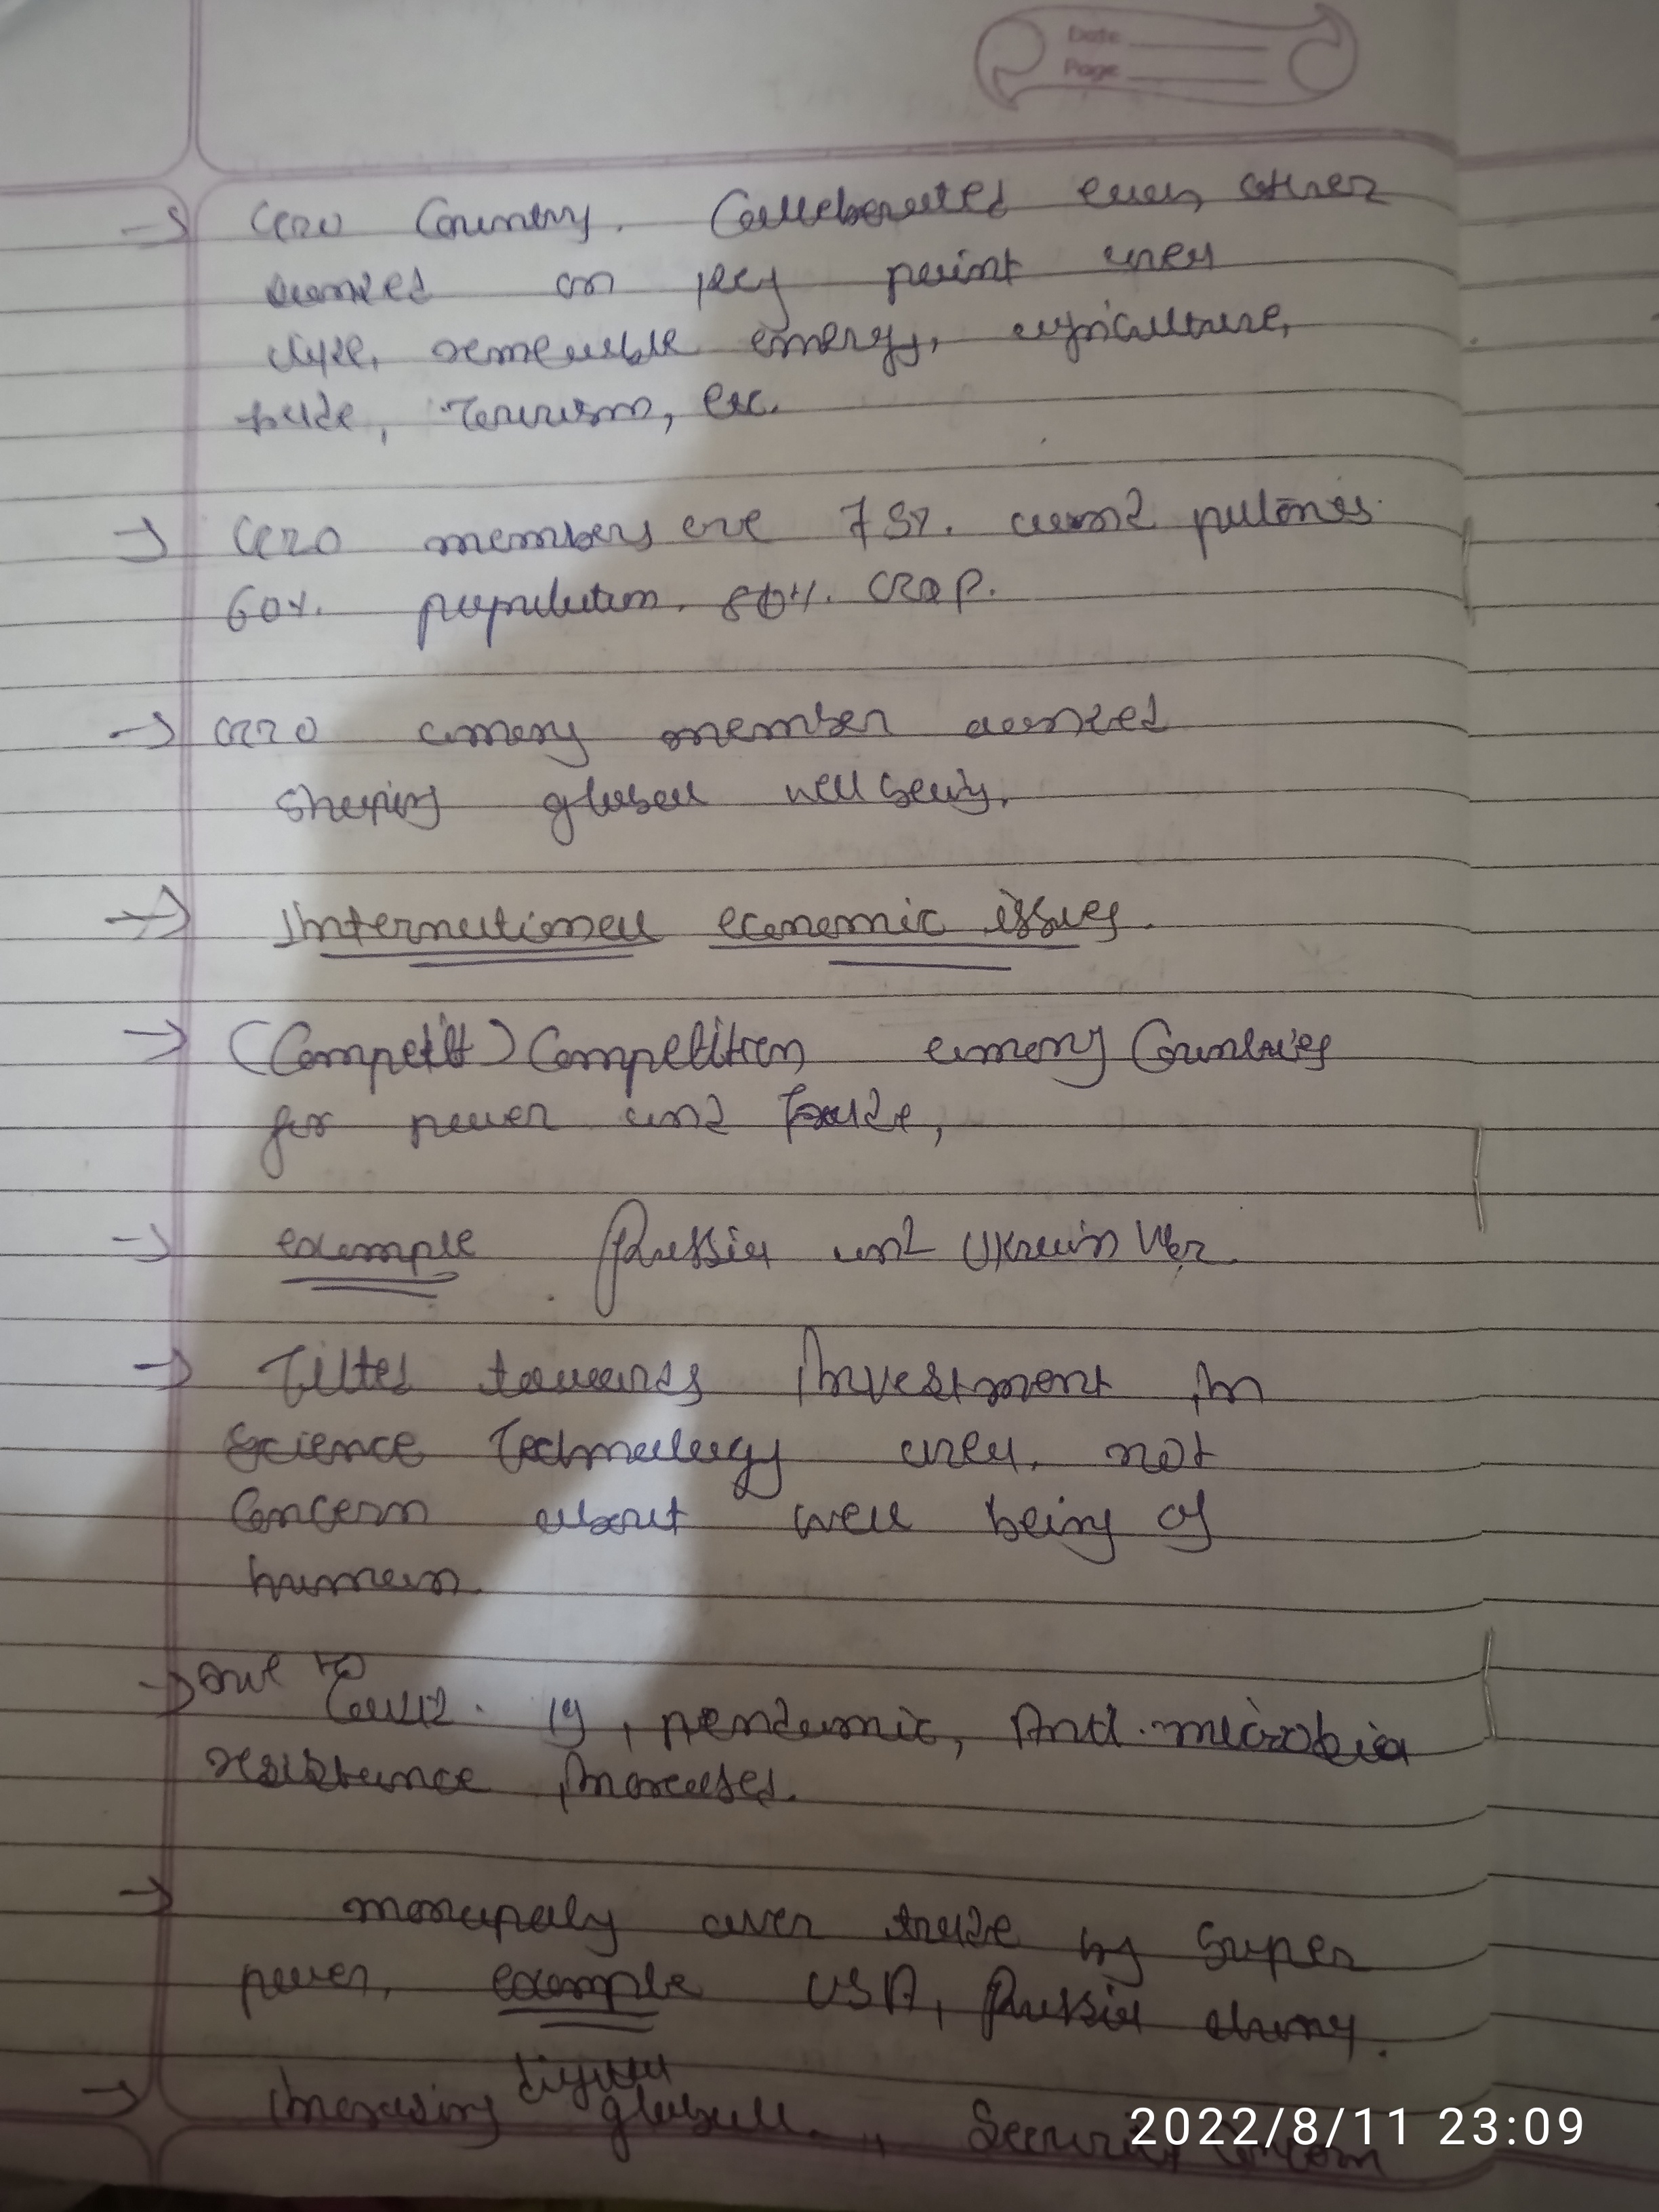 Date
Page
→ G20 Country. Collaborated each other
worked on key point area
like, renewable energy, agriculture,
trade, Tourism, etc.
→ G20 members are 75%.
60%. population. 80%. GDP.
→ G20 among member worked
shaping global well being.
→ International economic issues.
→ (Competit) Competition among Countries
for power and trade,
→ example Russia and Ukrain War.
→ Tilted towards Investment in
Science Technology area, not
Concern about well being of
human.
→ due to
Covid. 19, pendamic, Anti-microbia
resistance increased.
→ monopoly over trade by Super
power, example USA, Russia
digital
→ Increasing global. Security
2022/8/11 23:09